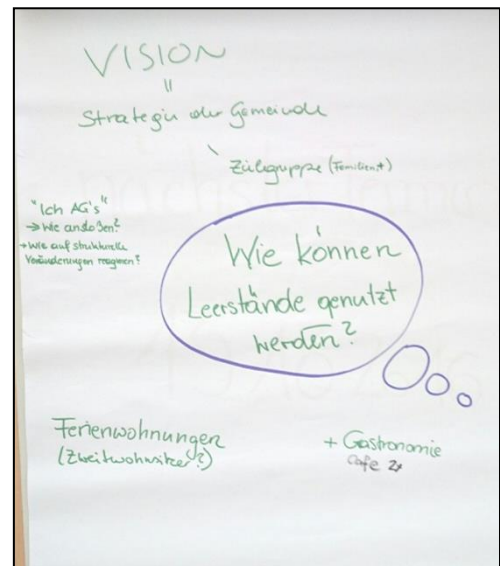 VISION
"
Strategie der Gemeinde
Zielgruppe (Familien+)
"Ich AG's"
→ Wie andoßen?
→ Wie auf strukturelle
Veränderungen reagieren?
Wie können
Leerstände genutzt
werden?
Ferienwohnungen
(Zweitwohnsitze?)
+ Gastronomie
Cafe 2x